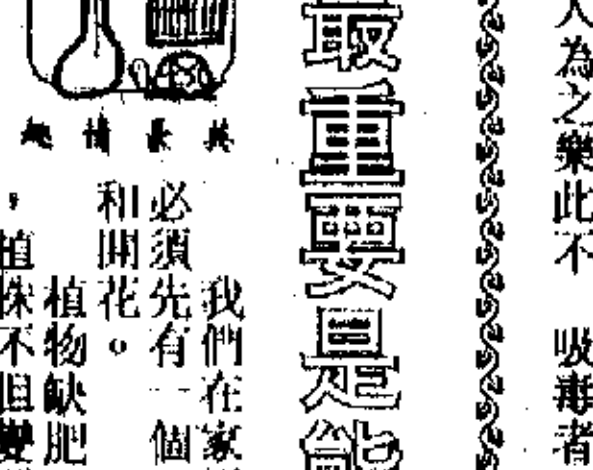 人為之樂此不　吸毒者
最重要是能
我們在家
必須先有一個
和開花。
植物缺肥
，植株不但變